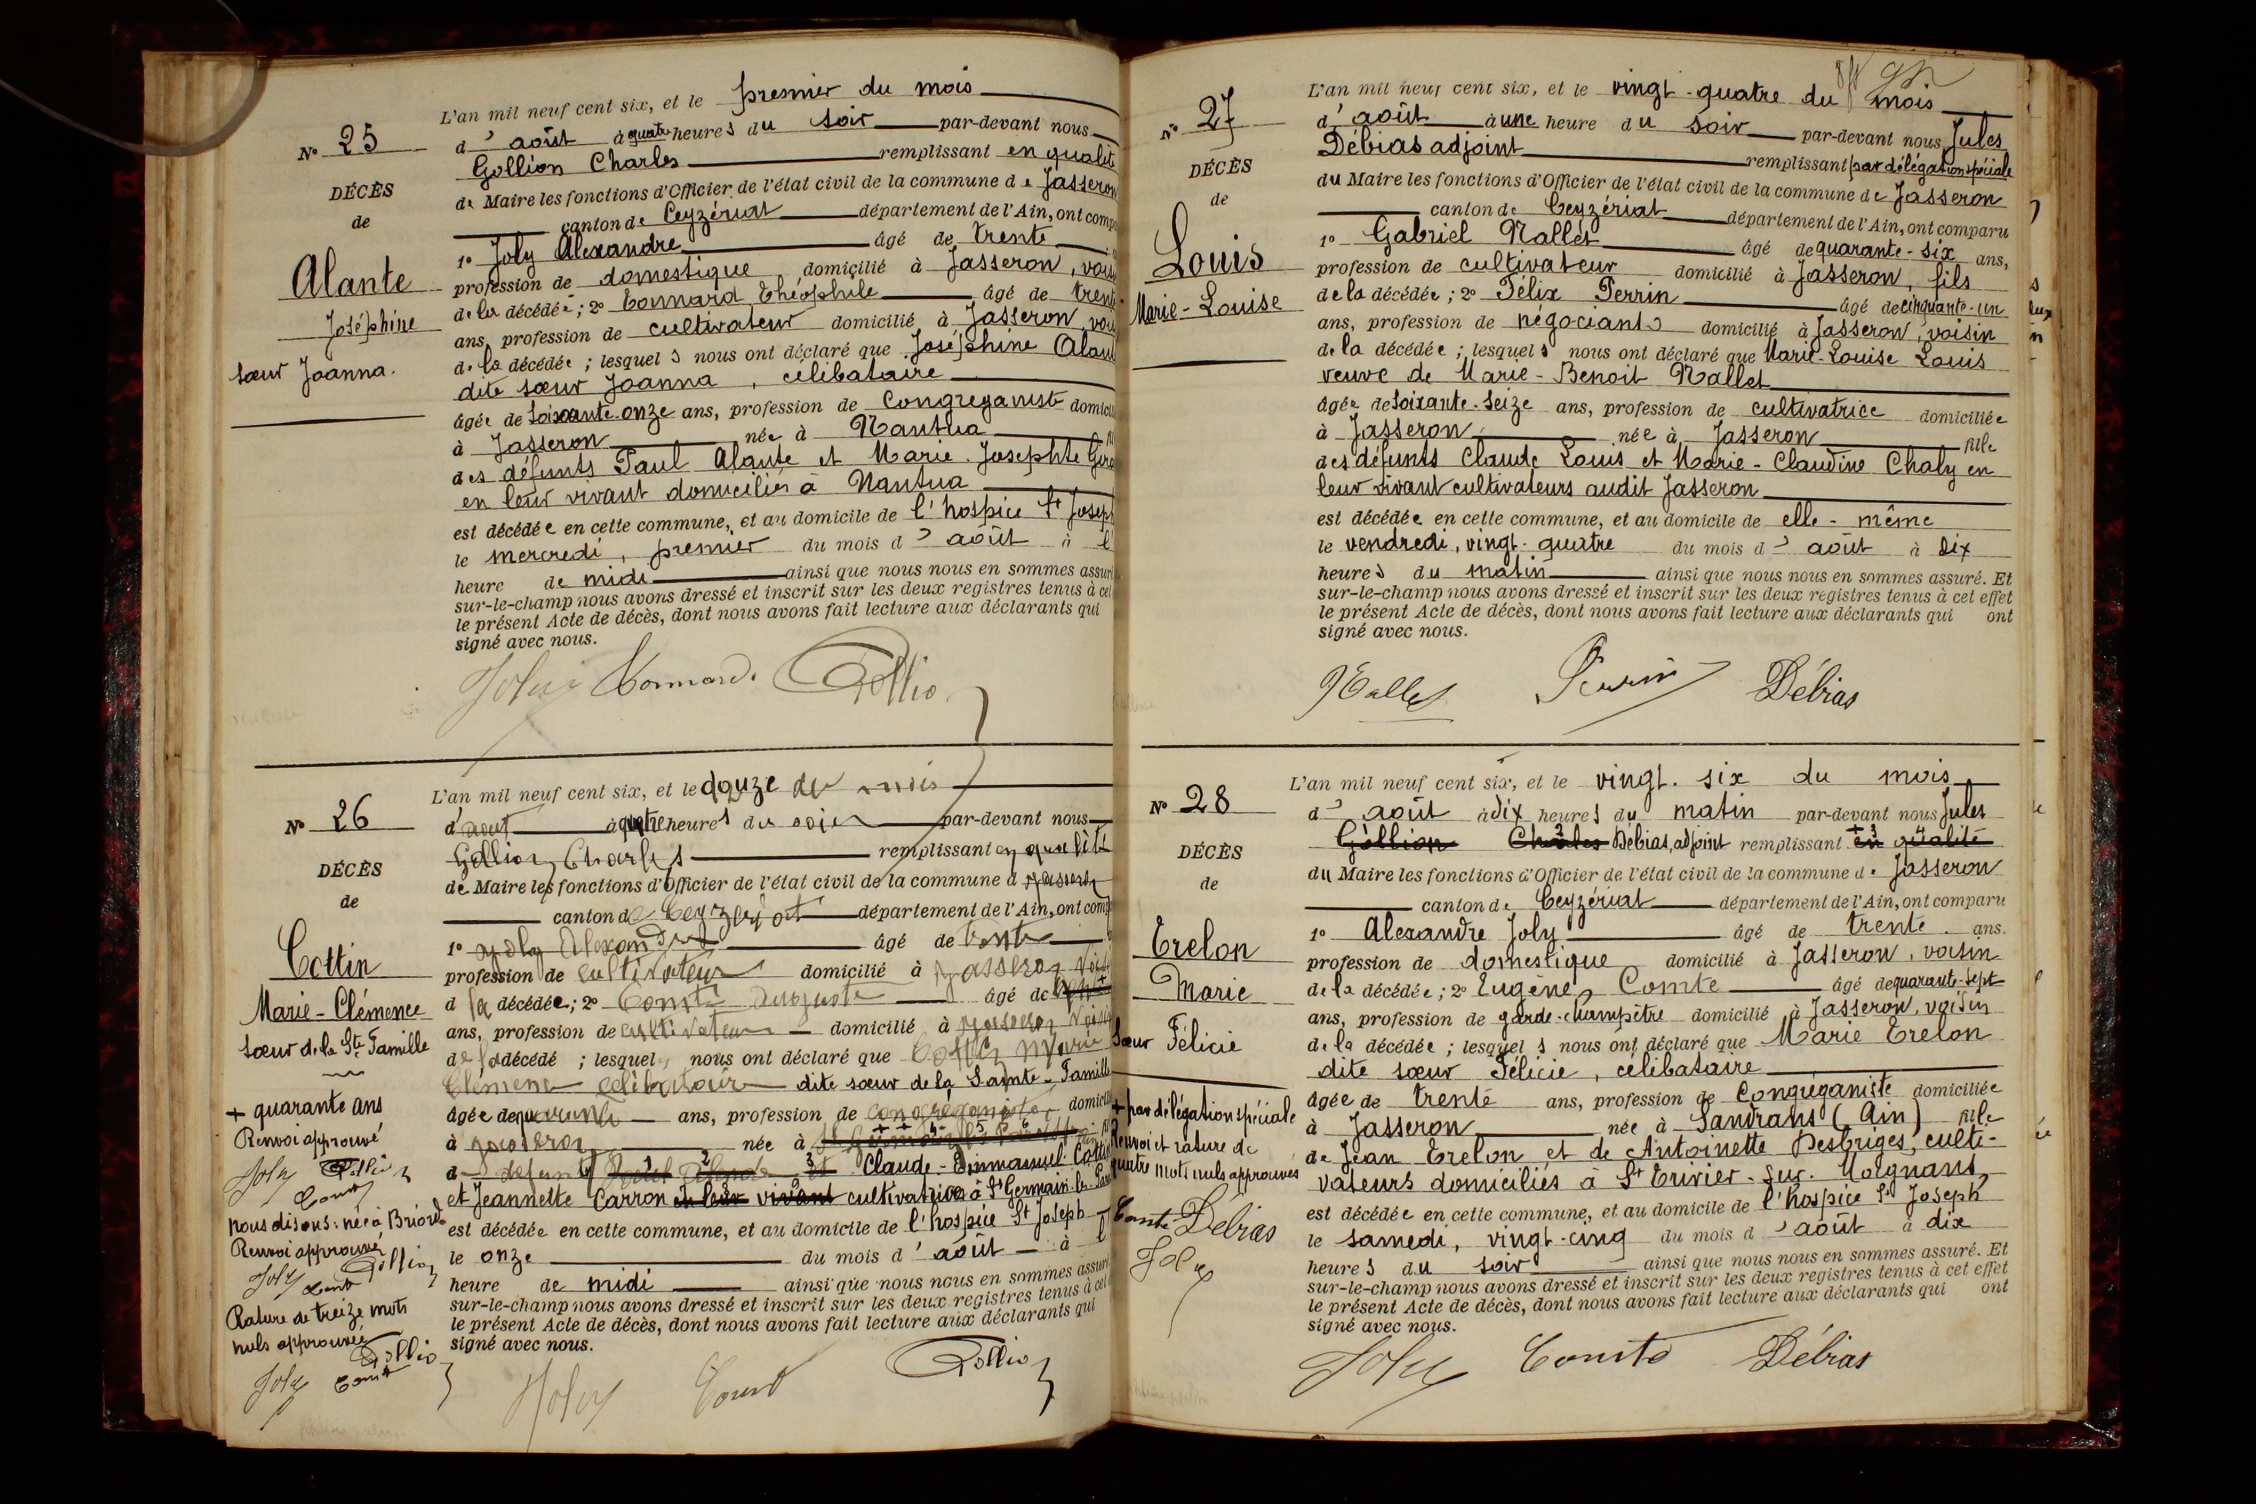 N° 25
DÉCÈS
de
Alante
Joséphine
sœur Joanna.
L'an mil neuf cent six, et le premier du mois
d'août à quatre heures du soir par-devant nous
Gollion Charles remplissant en qualité
de Maire les fonctions d'Officier de l'état civil de la commune de Jasseron
canton de Ceyzériat département de l'Ain, ont comp
1° Joly Alexandre âgé de trente
profession de domestique domicilié à Jasseron, vois
de la décédée ; 2° Connard Théophile âgé de trent
ans, profession de cultivateur domicilié à Jasseron, vois
de la décédée ; lesquels nous ont déclaré que Joséphine Alan
dite sœur Joanna, célibataire
âgée de soixante-onze ans, profession de Congréganiste domicil
à Jasseron née à Nantua
des défunts Paul Alante et Marie-Josephte Gira
en leur vivant domiciliés à Nantua
est décédée en cette commune, et au domicile de l'hospice St Joseph
le mercredi, premier du mois d'août à l'
heure de midi ainsi que nous nous en sommes assuré
sur-le-champ nous avons dressé et inscrit sur les deux registres tenus à cet
le présent Acte de décès, dont nous avons fait lecture aux déclarants qui
signé avec nous.
Joly Connard Gollion
N° 26
DÉCÈS
de
Cottin
Marie-Clémence
sœur de la Ste Famille
+ quarante ans
Renvoi approuvé
Joly Gollion
Comte
nous disons : née à Briord
Renvoi approuvé
Joly Comte Gollion
Rature de treize mots
nuls approuvée
Joly Comte Gollion
L'an mil neuf cent six, et le douze du mois
d'août à quatre heures du soir par-devant nous
Gollion Charles remplissant en qualité
de Maire les fonctions d'Officier de l'état civil de la commune d Jasseron
canton de Ceyzériat département de l'Ain, ont comp
1° Joly Alexandre âgé de trente
profession de cultivateur domicilié à Jasseron vois
d la décédée ; 2° Comte Auguste âgé de
ans, profession de cultivateur domicilié à Jasseron vois
de la décédé ; lesquels nous ont déclaré que Cottin Marie
Clémence célibataire dite sœur de la Sainte-Famille
âgée de quarante ans, profession de congréganiste domicil
à Jasseron née à St Germain les
d défunts Claude-Emmanuel Cottin
et Jeannette Carron en leur vivant cultivatrice à St Germain-les-
est décédée en cette commune, et au domicile de l'hospice St Joseph
le onze du mois d'août à l'
heure de midi ainsi que nous nous en sommes assuré
sur-le-champ nous avons dressé et inscrit sur les deux registres tenus à cet
le présent Acte de décès, dont nous avons fait lecture aux déclarants qui
signé avec nous.
Joly Comte Gollion
N° 27
DÉCÈS
de
Louis
Marie-Louise
L'an mil neuf cent six, et le vingt-quatre du mois
d'août à une heure du soir par-devant nous Jules
Débias adjoint remplissant par délégation spéciale
du Maire les fonctions d'Officier de l'état civil de la commune de Jasseron
canton de Ceyzériat département de l'Ain, ont comparu
1° Gabriel Nallet âgé de quarante-six ans,
profession de cultivateur domicilié à Jasseron, fils
de la décédée ; 2° Félix Perrin âgé de cinquante-un
ans, profession de négociant domicilié à Jasseron, voisin
de la décédée ; lesquels nous ont déclaré que Marie-Louise Louis
veuve de Marie-Benoit Nallet
âgée de soixante-seize ans, profession de cultivatrice domiciliée
à Jasseron née à Jasseron fille
des défunts Claude Louis et Marie-Claudine Chaty en
leur vivant cultivateurs audit Jasseron
est décédée en cette commune, et au domicile de elle-même
le vendredi, vingt-quatre du mois d'août à six
heures du matin ainsi que nous nous en sommes assuré. Et
sur-le-champ nous avons dressé et inscrit sur les deux registres tenus à cet effet
le présent Acte de décès, dont nous avons fait lecture aux déclarants qui ont
signé avec nous.
Nallet Perrin Débias
N° 28
DÉCÈS
de
Trelon
Marie
Sœur Félicie
+ par délégation spéciale
Renvoi et rature de
quatre mots nuls approuvés
Comte Débias
Joly
L'an mil neuf cent six, et le vingt-six du mois
d'août à dix heures du matin par-devant nous Jules
Gollion Charles Débias, adjoint remplissant + en qualité
du Maire les fonctions d'Officier de l'état civil de la commune de Jasseron
canton de Ceyzériat département de l'Ain, ont comparu
1° Alexandre Joly âgé de trente ans.
profession de domestique domicilié à Jasseron, voisin
de la décédée ; 2° Eugène Comte âgé de quarante-sept
ans, profession de garde-champêtre domicilié à Jasseron, voisin
de la décédée ; lesquels nous ont déclaré que Marie Trelon
dite sœur Félicie, célibataire
âgée de trente ans, profession de Congréganiste domiciliée
à Jasseron née à Sandrans (Ain) fille
de Jean Trelon et de Antoinette Desbriges, culti-
vateurs domiciliés à St Trivier-sur-Moignans,
est décédée en cette commune, et au domicile de l'hospice St Joseph
le samedi, vingt-cinq du mois d'août à dix
heures du soir ainsi que nous nous en sommes assuré. Et
sur-le-champ nous avons dressé et inscrit sur les deux registres tenus à cet effet
le présent Acte de décès, dont nous avons fait lecture aux déclarants qui ont
signé avec nous.
Joly Comte Débias